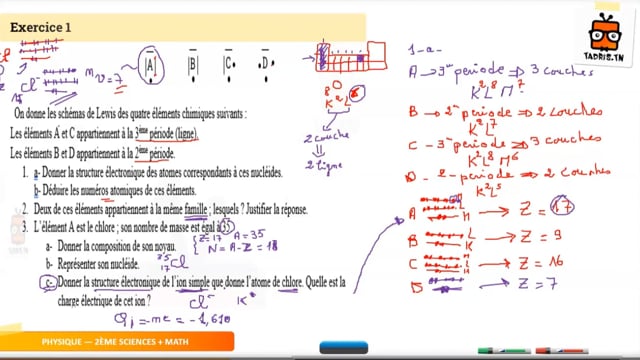 Exercice 1
TADRIS.TN
Cl⁻
nᵥ = 7
|A| |B| |C• •D•
₈O
K² L⁶
2 couche
2 ligne
On donne les schémas de Lewis des quatre éléments chimiques suivants :
Les éléments A et C appartiennent à la 3ème période (ligne).
Les éléments B et D appartiennent à la 2ème période.
1. a- Donner la structure électronique des atomes correspondants à ces nucléides.
b- Déduire les numéros atomiques de ces éléments.
2. Deux de ces éléments appartiennent à la même famille ; lesquels ? Justifier la réponse.
3. L'élément A est le chlore ; son nombre de masse est égal à 35
a- Donner la composition de son noyau.
Z=17 A=35
N = A-Z = 18
b- Représenter son nucléide.
³⁵₁₇Cl
c- Donner la structure électronique de l'ion simple que donne l'atome de chlore. Quelle est la
charge électrique de cet ion ?
Cl⁻
1-a-
A → 3ᵉ periode ⇒ 3 couches
K² L⁸ M⁷
B → 2ᵉ periode ⇒ 2 couches
K² L⁷
C → 3ᵉ periode ⇒ 3 couches
K² L⁸ M⁶
D - 2 - periode ⇒ 2 couches
K² L⁵
A → Z = 17
B L K → Z = 9
C M L K → Z = 16
D → Z = 7
PHYSIQUE — 2ÈME SCIENCES + MATH